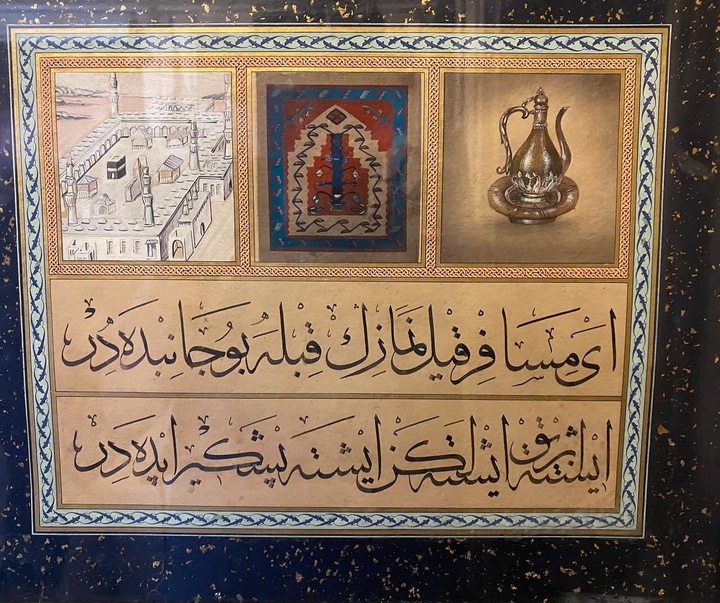 ای مسافر قیل نمازڭ قبله بو جانبده در
ایشته ابریق ایشته لكن ایشته پشكیر ایپده در